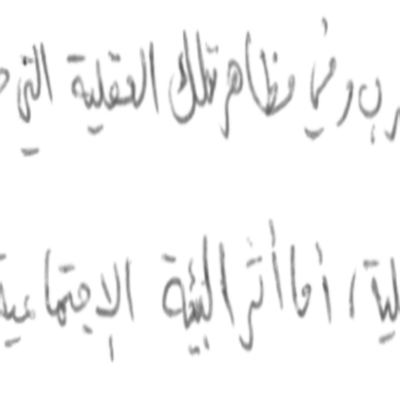 وفي مظاهر تلك العقلية التي
، أما أثر البيئة الاجتماعية